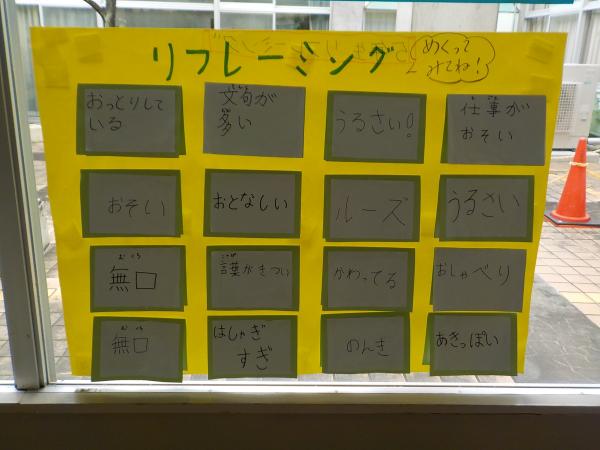 リフレーミング
めくって
みてね!
おっとりして
いる
文句が
多い
うるさい!
仕事が
おそい
おそい
おとなしい
ルーズ
うるさい
むくち
無口
ことば
言葉がきつい
かわってる
おしゃべり
むくち
無口
はしゃぎ
すぎ
のんき
あきっぽい